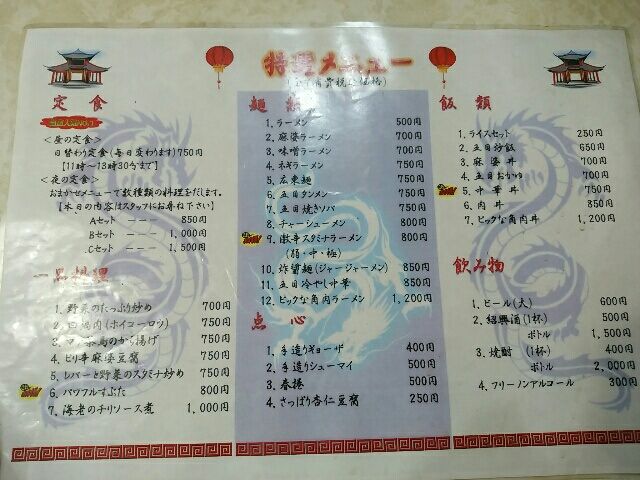 特選メニュー
定食
<昼の定食>
日替わり定食(毎日変わります)750円
【11時〜13時30分まで】
<夜の定食>
おまかせメニューで数種類の料理をだします。
【本日の内容はスタッフにお尋ね下さい】
Aセット --- 850円
Bセット --- 1,000円
Cセット --- 1,500円
一品料理
1. 野菜のたっぷり炒め 700円
2. 回鍋肉(ホイコーロウ) 750円
3. 若鶏のから揚げ 750円
4. ピリ辛麻婆豆腐 750円
5. レバーと野菜のスタミナ炒め 750円
6. パワフルすぶた 800円
7. 海老のチリソース煮 1,000円
麺類
1. ラーメン 500円
2. 麻婆ラーメン 700円
3. 味噌ラーメン 700円
4. ネギラーメン 750円
5. 広東麺 750円
6. 五目タンメン 750円
7. 五目焼きソバ 750円
8. チャーシューメン 800円
9. 激辛スタミナラーメン 800円
(弱・中・極)
10. 炸醤麺(ジャージャーメン) 850円
11. 五目冷やし中華 850円
12. ビックな角肉ラーメン 1,200円
点心
1. 手造りギョーザ 400円
2. 手造りシューマイ 500円
3. 春捲 500円
4. さっぱり杏仁豆腐 250円
飯類
1. ライスセット 250円
2. 五目炒飯 650円
3. 麻婆丼 700円
4. 五目おかゆ 700円
5. 中華丼 750円
6. 肉丼 850円
7. ビックな角肉丼 1,200円
飲み物
1. ビール(大) 600円
2. 紹興酒(1杯) 500円
ボトル 1,500円
3. 焼酎(1杯) 400円
ボトル 2,000円
4. フリーノンアルコール 300円